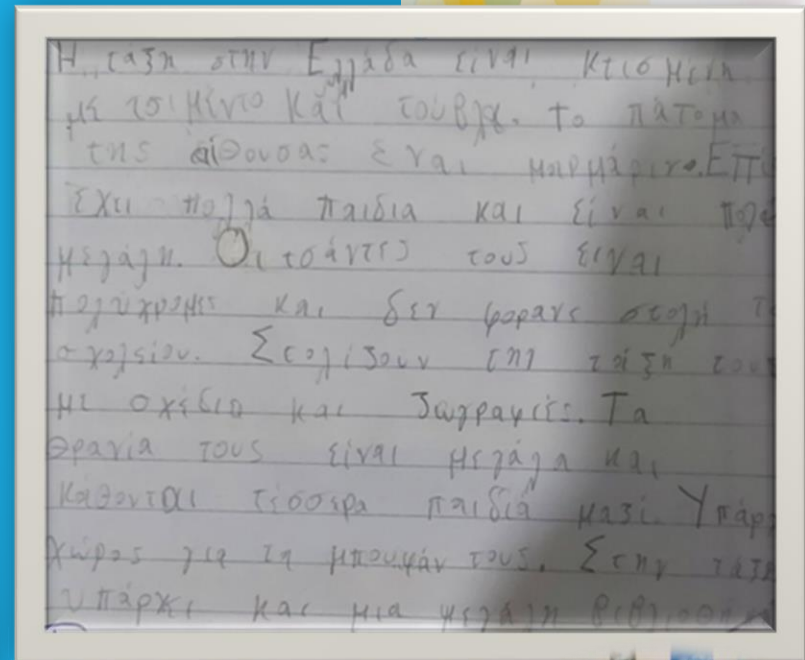 Η τάξη στην Ελλάδα είναι κτισμένη
με τσιμέντο και τούβλα. το πάτομα
της αίθουσας έναι μαρμάρινο. Επί
Έχει πολλά παιδιά και είναι πολύ
μεγάλη. Οι τσάντες τους είναι
πολύχρομες και δεν φορανε στολή τ
σχολείου. Στολίζουν τη τάξη του
με σχέδια και ζωγραφιές. Τα
θρανία τους είναι μεγάλα και
κάθονται τέσσερα παιδιά μαζί. Υπάρ
χώρος για τα μπουφάν τους. Στην τάξη
υπάρχει και μια μεγάλη βιβλιοθή